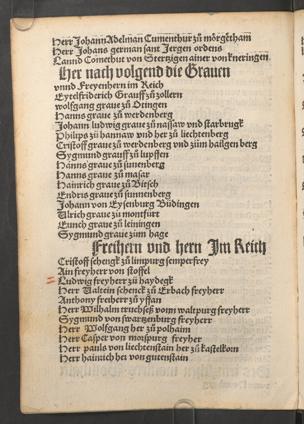 Herr Johann Adelman Cumenthur zů mörgetham
Herr Johans german sant Jergen ordens
Lannd Comethur von Stertzigen ainer von kneringen
Her nach volgend die Grauen
vnnd Freyenhern im Reich
Eytelfriderich Grauff zů zollern
wolfgang graue zů Otingen
Hanns graue zů werdenberg
Johann ludwig graue zů nassaw vnd starbrugk
Philips zů hannaw vnd her zů liechtenberg
Cristoff graue zů werdenberg vnd zům hailgen berg
Sygmund grauff zů lupffen
Hanns graue zů sunenberg
Hanns graue zů masar
Hainrich graue zů Bitsch
Endris graue zů sunnenberg
Johann von Eysenburg Büdingen
Ulrich graue zů montfurt
Emich graue zů leiningen
Sygmund graue zum hage
Freihern vnd hern Jm Reich
Cristoff schengk zů limpurg semperfrey
Ain freyherr von stoffel
Ludwig freyherr zů haydegk
Herr Valtein schenck zů Erbach freyherr
Anthony freiherr zů yssan
Herr Wilhalm truchseß vom waltpurg freyherr
Sygmund von swartzenburg freyherr
Herr Wolfgang her zů polhaim
Herr Casper von morspurg freyher
Herr pauls von liechtenstain her zů kastelkorn
Herr hainrich her von gutenstain